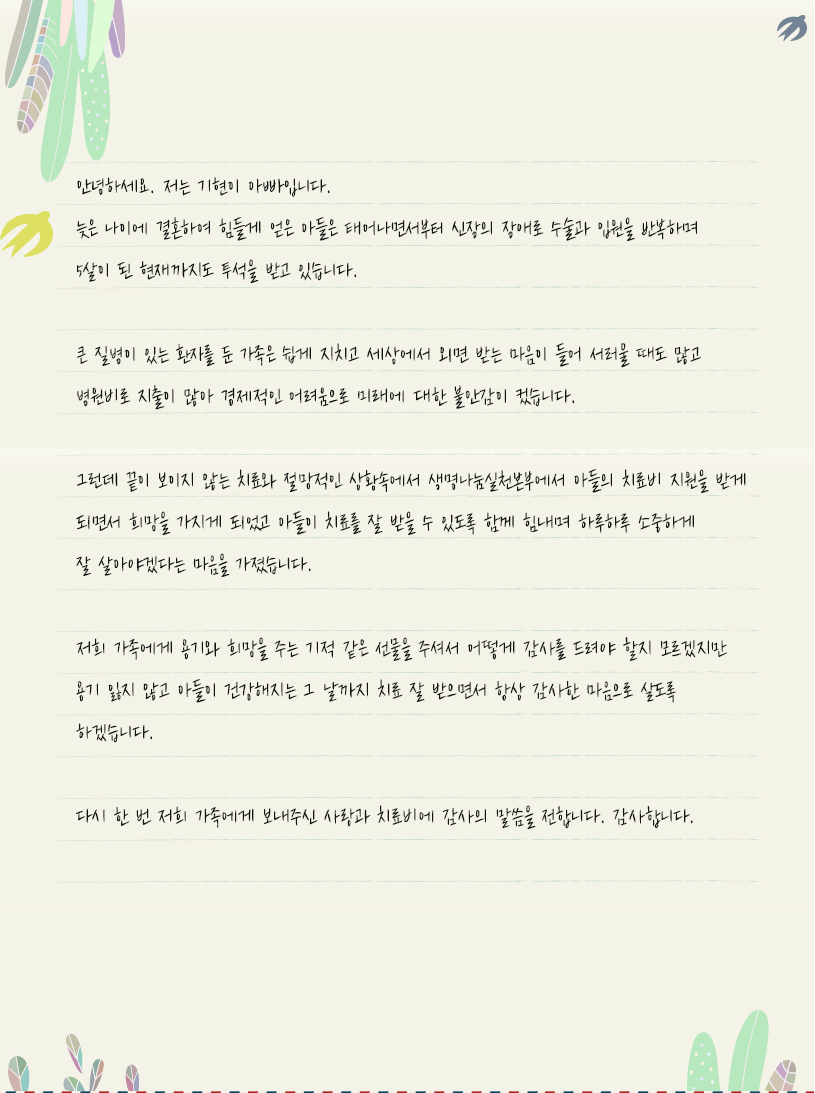 안녕하세요. 저는 기현이 아빠입니다.
늦은 나이에 결혼하여 힘들게 얻은 아들은 태어나면서부터 신장의 장애로 수술과 입원을 반복하며
5살이 된 현재까지도 투석을 받고 있습니다.
큰 질병이 있는 환자를 둔 가족은 쉽게 지치고 세상에서 외면 받는 마음이 들어 서러울 때도 많고
병원비로 지출이 많아 경제적인 어려움으로 미래에 대한 불안감이 컸습니다.
그런데 끝이 보이지 않는 치료와 절망적인 상황속에서 생명나눔실천본부에서 아들의 치료비 지원을 받게
되면서 희망을 가지게 되었고 아들이 치료를 잘 받을 수 있도록 함께 힘내며 하루하루 소중하게
잘 살아야겠다는 마음을 가졌습니다.
저희 가족에게 용기와 희망을 주는 기적 같은 선물을 주셔서 어떻게 감사를 드려야 할지 모르겠지만
용기 잃지 않고 아들이 건강해지는 그 날까지 치료 잘 받으면서 항상 감사한 마음으로 살도록
하겠습니다.
다시 한 번 저희 가족에게 보내주신 사랑과 치료비에 감사의 말씀을 전합니다. 감사합니다.